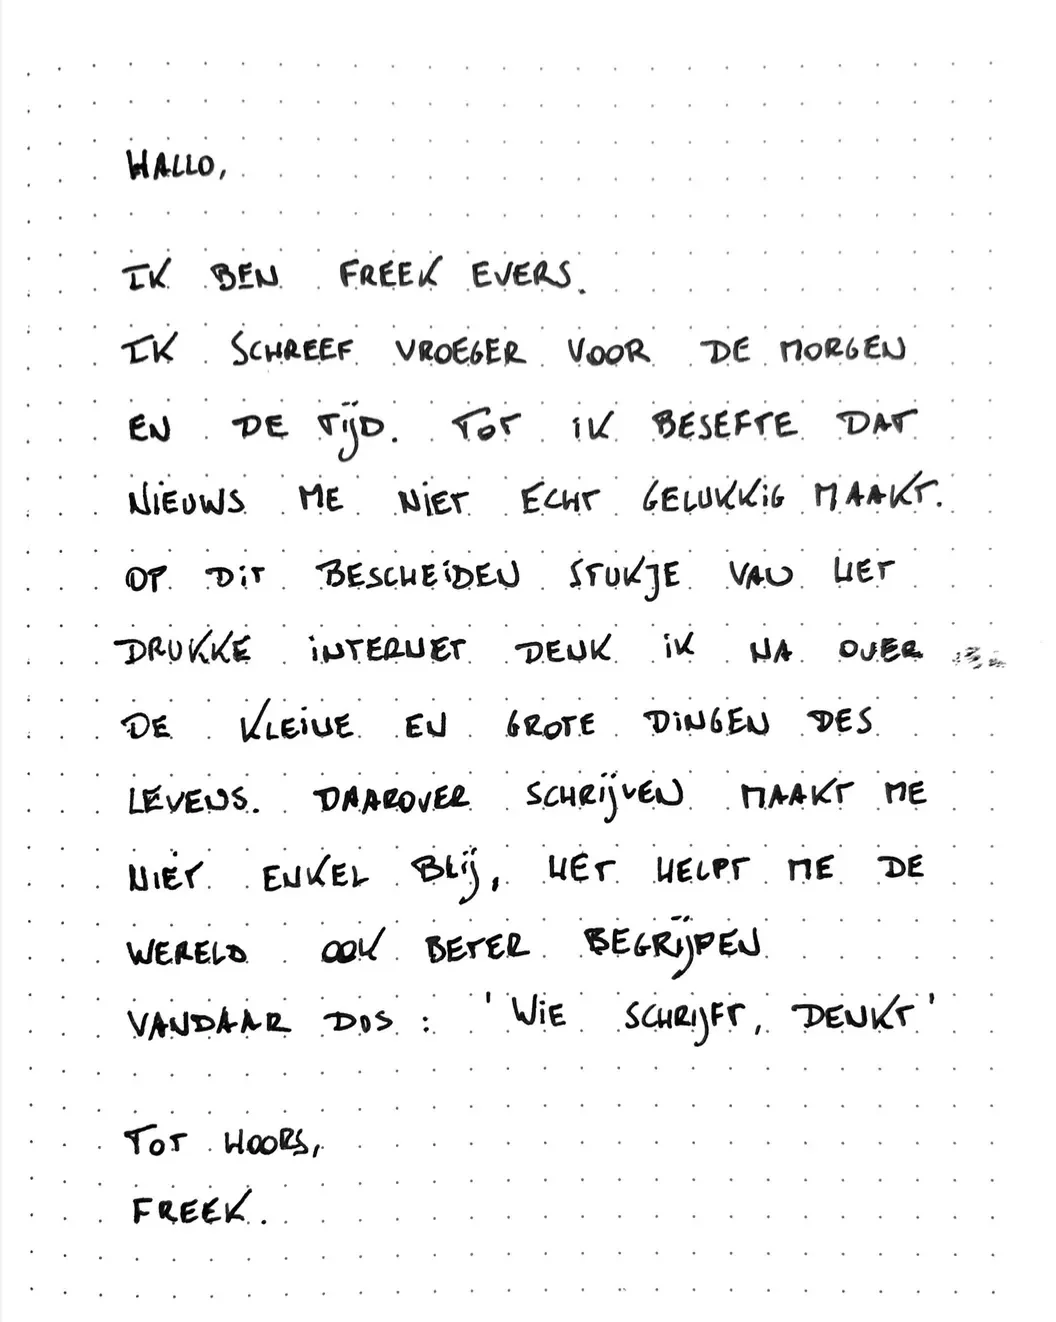 HALLO,
IK BEN FREEK EVERS.
IK SCHREEF VROEGER VOOR DE MORGEN
EN DE TIJD. TOT IK BESEFTE DAT
NIEUWS ME NIET ECHT GELUKKIG MAAKT.
OP DIT BESCHEIDEN STUKJE VAN HET
DRUKKE INTERNET DENK IK NA OVER
DE KLEINE EN GROTE DINGEN DES
LEVENS. DAAROVER SCHRIJVEN MAAKT ME
NIET ENKEL BLIJ, HET HELPT ME DE
WERELD OOK BETER BEGRIJPEN
VANDAAR DUS : 'WIE SCHRIJFT, DENKT'
TOT HOORS,
FREEK.